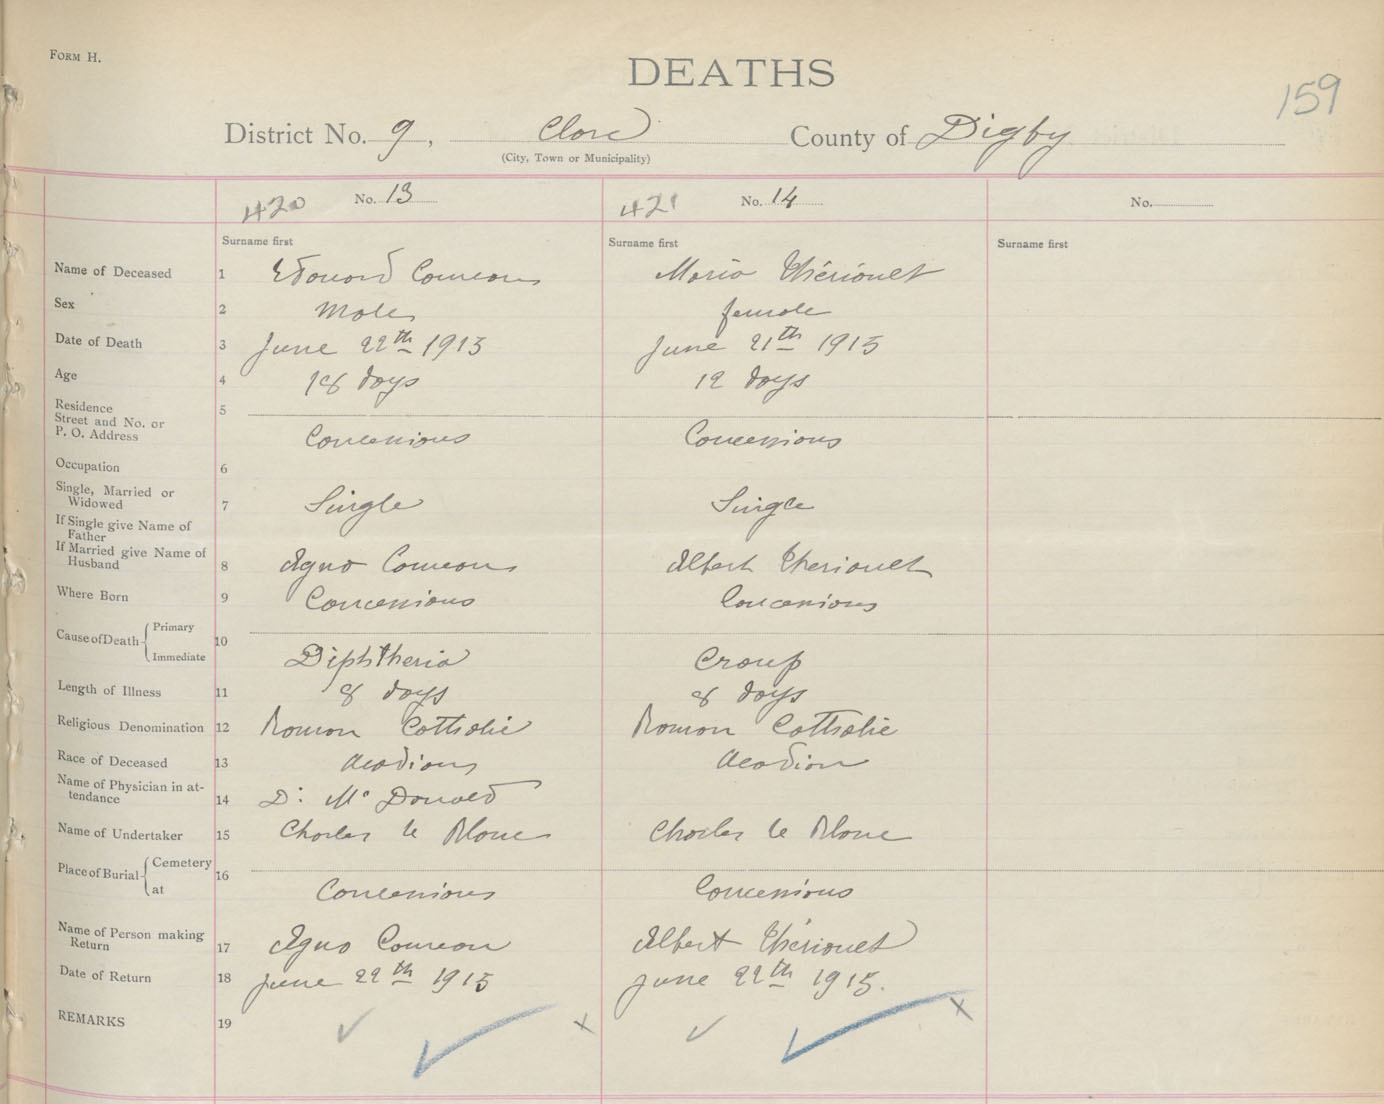 FORM H.
DEATHS
159
District No. 9, Clare County of Digby
(City, Town or Municipality)
420 No. 13 421 No. 14 No.
Surname first Surname first Surname first
Name of Deceased 1 Edouard Comeau Maria Thériault
Sex 2 Male female
Date of Death 3 June 22th 1915 June 21th 1915
Age 4 18 days 12 days
Residence
Street and No. or
P. O. Address 5 Concessions Concessions
Occupation 6
Single, Married or
Widowed 7 Single Single
If Single give Name of
Father
If Married give Name of
Husband 8 Comeau Albert Theriault
Where Born 9 Concessions Concessions
Cause of Death Primary
Immediate 10 Diphtheria Croup
Length of Illness 11 8 days 8 days
Religious Denomination 12 Roman Catholic Roman Catholic
Race of Deceased 13 Acadian Acadian
Name of Physician in at-
tendance 14 Dr Mc Donald
Name of Undertaker 15 Charles le Blanc Charles le Blanc
Place of Burial Cemetery
at 16 Concessions Concessions
Name of Person making
Return 17 Comeau Albert Thériault
Date of Return 18 June 22th 1915 June 22th 1915.
REMARKS 19